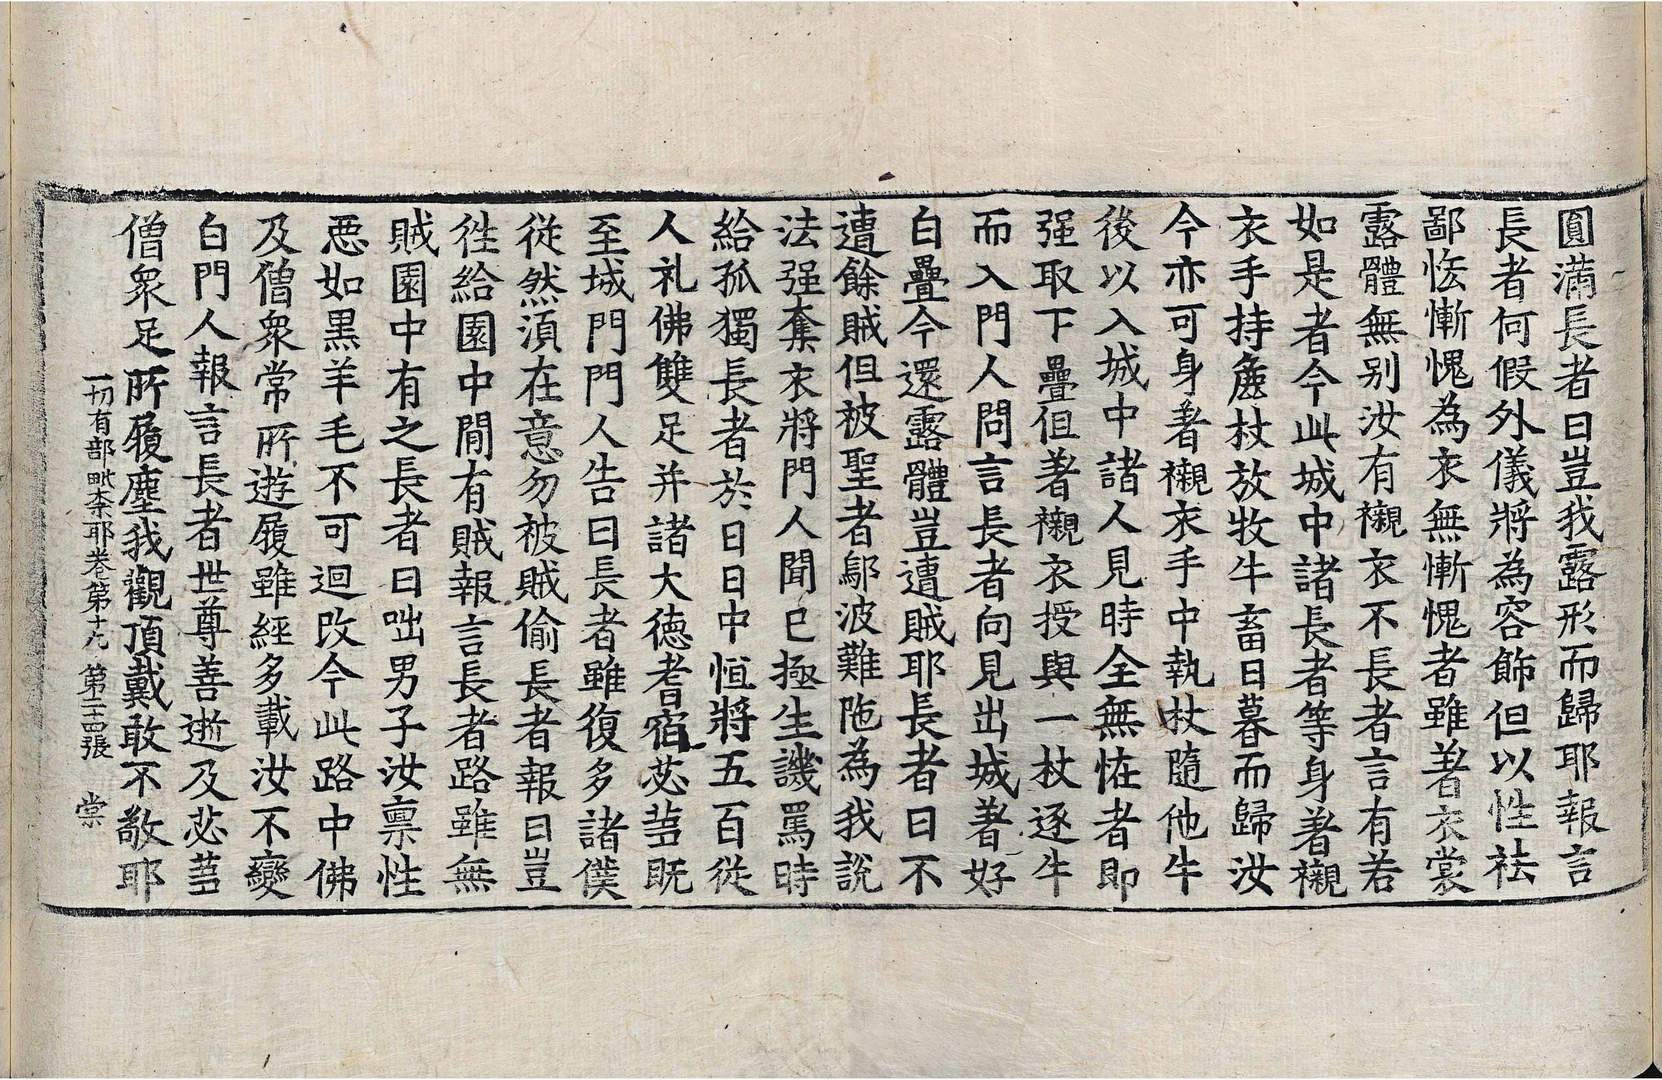 圓滿長者曰豈我露形而歸耶報言
長者何假外儀將為容飾但以性祛
鄙恡慚愧為衣無慚愧者雖著衣裳
露體無别汝有襯衣不長者言有若
如是者今此城中諸長者等身著襯
衣手持麁杖放牧牛畜日暮而歸汝
今亦可身著襯衣手中執杖隨他牛
後以入城中諸人見時全無恠者即
强取下疊但著襯衣授與一杖逐牛
而入門人問言長者向見出城著好
白疊今還露體豈遭賊耶長者曰不
遭餘賊但被聖者鄔波難陁為我說
法强奪衣將門人聞已極生譏罵時
給孤獨長者於日日中恒將五百從
人礼佛雙足并諸大德耆宿苾芻既
至城門門人告曰長者雖復多諸僕
從然湏在意勿被賊偷長者報曰豈
徃給園中間有賊報言長者路雖無
賊園中有之長者曰咄男子汝禀性
惡如黒羊毛不可迴改今此路中佛
及僧衆常所遊履雖經多載汝不變
白門人報言長者世尊善逝及苾芻
僧衆足所履塵我觀頂戴敢不敬耶
一切有部毗柰耶卷第十九 第二十四張 棠